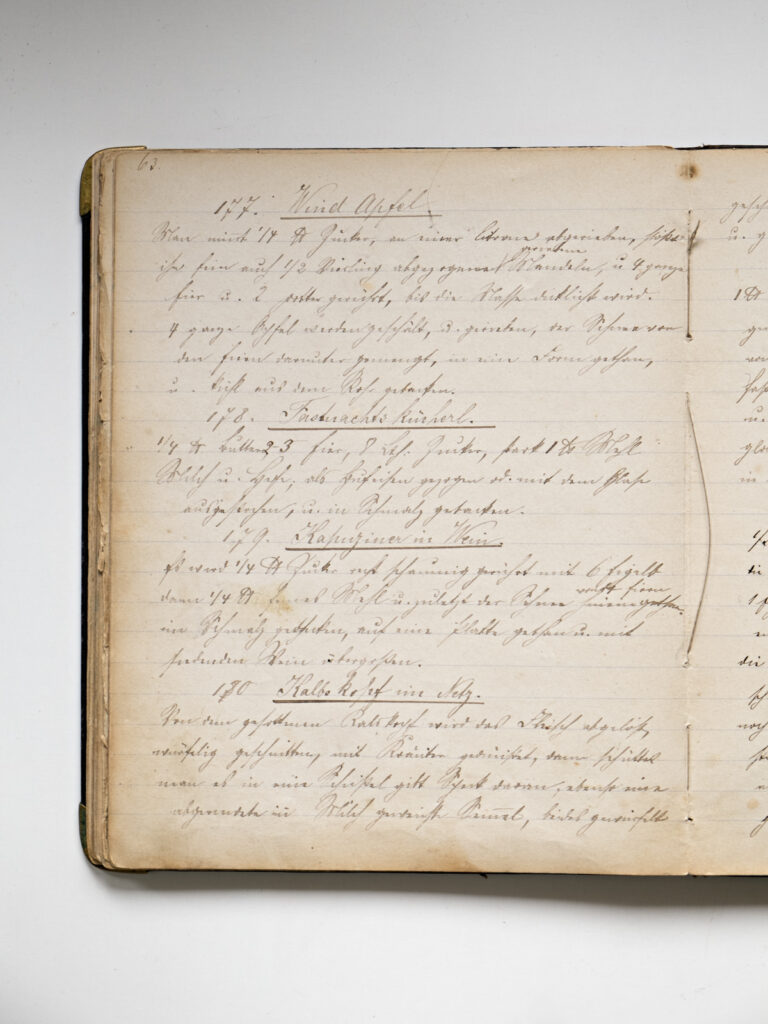 63.
177. Wind Apfel
Man nimt 1/4 ℔ Zucker, an einer Citrone abgerieben,
ihn fein auch 1/2 Vierling abgezogenen geriebene Mandeln, u 4 ganze
Eier u. 2 gerührt, bis die Masse dicklicht wird.
4 ganze Apfel werden geschält, u. gerieben, der Schnee von
den Eiern darunter gemengt, in eine Form gethan,
u. aus dem Rohr gebacken.
178. Fastnachtskücherl.
1/4 ℔ Butter 2 3 Eier, 8 Lth. Zucker, stark 1 ℔ Mehl
Milch u. Hefe, als Hufeisen gezogen od. mit dem Glase
ausgestochen, u. in Schmalz gebacken.
179. Kapuziner in Wein.
Es wird 1/4 ℔ Zucker recht schaumig gerührt mit 6 Eigelb
dann 1/4 ℔ feines Mehl u. zuletzt der Schnee
im Schmalz gebacken, auf eine Platte gethan u. mit
siedenden Wein übergossen.
180 Kalbskopf im Netz.
Von dem gesottenen Kalbskopf wird das Fleisch abgelöst,
würfelig geschnitten, mit Kräuter gedünstet, dann schüttet
man es in eine Schüssel gibt Speck daran, ebenso eine
abgerindete in Milch geweichte Semmel, beides gewürfelt
gesch
u. g
1 ℔
u.
in
1/2
die
die
noch